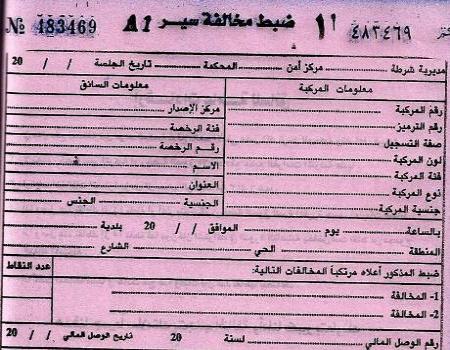 № 483469 A1 ضبط مخالفة سير أ1 ٤٨٣٤٦٩
مديرية شرطة مركز أمن المحكمة تاريخ الجلسة / / 20
معلومات المركبة
رقم المركبة
رقم الترميز
صفة التسجيل
لون المركبة
فئة المركبة
نوع المركبة
جنسية المركبة
معلومات السائق
مركز الإصدار
فئة الرخصة
رقم الرخصة
الاسم
العنوان
الجنسية الجنس
بالساعة يوم الموافق / / 20 بلدية
المنطقة الحي الشارع
ضبط المذكور أعلاه مرتكباً المخالفات التالية: عدد النقاط
1- المخالفة
2- المخالفة
رقم الوصل المالي لسنة 20 تاريخ الوصل المالي / / 20